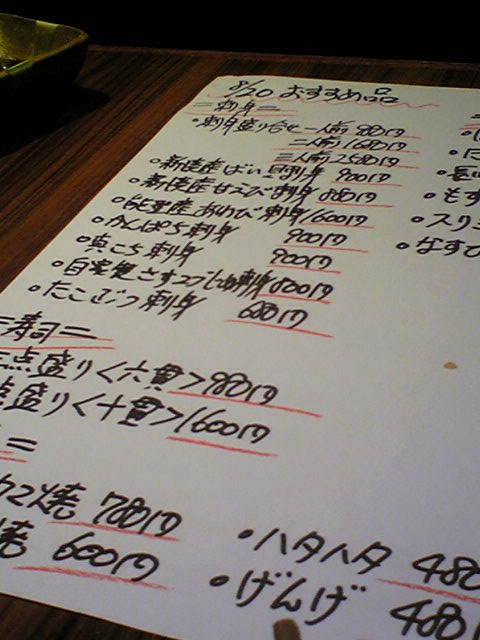 8/20 おすすめ品
=刺身=
・刺身盛り合せ 一人前 880円
二人前 1680円
三人前 2580円
・新湊産ばい貝刺身 900円
・新湊産甘えび刺身 880円
・能登産あわび刺身 1600円
・かんぱち刺身 900円
・真こち刺身 900円
刺身 800円
・たこぶつ刺身 680円
=寿司=
点盛り<六貫> 980円
点盛り<十貫> 1600円
=
焼 780円
焼 600円
・ハタハタ 480
・げんげ 480
・もず
・スリ
・なすひ